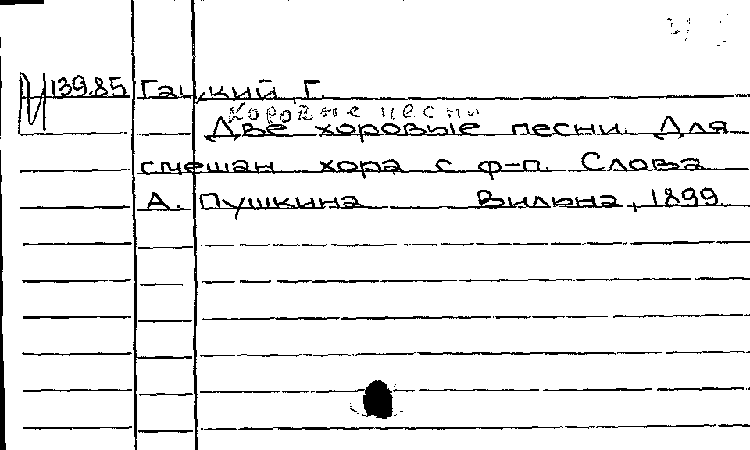 139.85 Гацкий Г.
Хоровые песни
Две хоровые песни. Для
смешан хора с ф-п. Слова
А. Пушкина Вильна, 1899